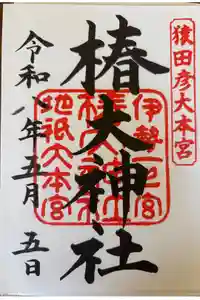 猿田彦大本宮
伊勢一之宮
椿大神社
地祇大本宮
椿大神社
令和八年五月五日